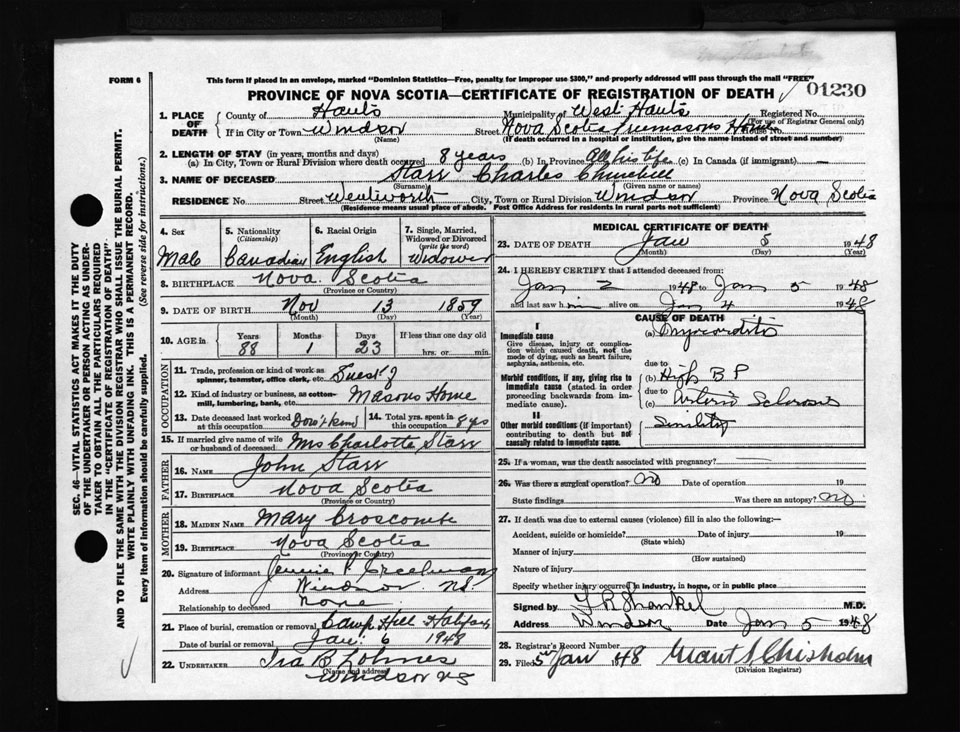 FORM 6
This form if placed in an envelope, marked "Dominion Statistics—Free, penalty for improper use $300," and properly addressed will pass through the mail "FREE"
PROVINCE OF NOVA SCOTIA—CERTIFICATE OF REGISTRATION OF DEATH
✓ 01230
1. PLACE OF DEATH { County of Hants Municipality of West Hants Registered No.
(For use of Registrar General only)
If in City or Town Windsor Street Nova Scotia Freemasons Home House No.
(Name) (If death occurred in a hospital or institution, give the name instead of street and number)
2. LENGTH OF STAY (in years, months and days)
(a) In City, Town or Rural Division where death occurred 8 years (b) In Province All his life (c) In Canada (if immigrant) —
3. NAME OF DECEASED Starr Charles Churchill
(Surname) (Given name or names)
RESIDENCE No. Street Wentworth City, Town or Rural Division Windsor Province Nova Scotia
(Residence means usual place of abode. Post Office Address for residents in rural parts not sufficient)
4. Sex Male
5. Nationality (Citizenship) Canadian
6. Racial Origin English
7. Single, Married, Widowed or Divorced (write the word) Widower
8. BIRTHPLACE Nova Scotia
(Province or Country)
9. DATE OF BIRTH Nov 13 1859
(Month) (Day) (Year)
10. AGE in Years 88 Months 1 Days 23 If less than one day old hrs. or min.
OCCUPATION
11. Trade, profession or kind of work as spinner, teamster, office clerk, etc. Guest of
12. Kind of industry or business, as cotton-mill, lumbering, bank, etc. Masons Home
13. Date deceased last worked at this occupation
14. Total yrs. spent in this occupation 8 yrs
15. If married give name of wife or husband of deceased Mrs Charlotte Starr
FATHER
16. NAME John Starr
17. BIRTHPLACE Nova Scotia
(Province or Country)
MOTHER
18. MAIDEN NAME Mary Croscombe
19. BIRTHPLACE Nova Scotia
(Province or Country)
20. Signature of informant Jennie P. Creelman
Address Windsor N.S.
Relationship to deceased None
21. Place of burial, cremation or removal Camp Hill Halifax
Date of burial or removal Jan. 6 1948
22. UNDERTAKER Ira B Lohnes
(Name and address)
Windsor NS
MEDICAL CERTIFICATE OF DEATH
23. DATE OF DEATH Jan 5 1948
(Month) (Day) (Year)
24. I HEREBY CERTIFY that I attended deceased from:
Jan 2 1948 to Jan 5 1948
and last saw him alive on Jan 4 1948
CAUSE OF DEATH
I
Immediate cause
Give disease, injury or complication which caused death, not the mode of dying, such as heart failure, asphyxia, asthenia, etc.
(a) Myocarditis
due to
Morbid conditions, if any, giving rise to immediate cause (stated in order proceeding backwards from immediate cause).
(b) High B P
due to
(c) Arterio Sclerosis
II
Other morbid conditions (if important) contributing to death but not causally related to immediate cause.
Senility
25. If a woman, was the death associated with pregnancy? —
26. Was there a surgical operation? No Date of operation 19
State findings Was there an autopsy? No
27. If death was due to external causes (violence) fill in also the following:—
Accident, suicide or homicide? Date of injury 19
(State which)
Manner of injury
(How sustained)
Nature of injury
Specify whether injury occurred in industry, in home, or in public place
Signed by Shankel M.D.
Address Windsor Date Jan 5 1948
28. Registrar's Record Number
29. Filed 5 Jan 1948 Grant S Chisholm
(Division Registrar)
SEC. 46—VITAL STATISTICS ACT MAKES IT THE DUTY
OF THE UNDERTAKER OR PERSON ACTING AS UNDER-
TAKER TO OBTAIN ALL THE PARTICULARS REQUIRED
IN THE "CERTIFICATE OF REGISTRATION OF DEATH"
AND TO FILE THE SAME WITH THE DIVISION REGISTRAR WHO SHALL ISSUE THE BURIAL PERMIT.
WRITE PLAINLY WITH UNFADING INK. THIS IS A PERMANENT RECORD.
Every item of information should be carefully supplied. (See reverse side for instructions.)